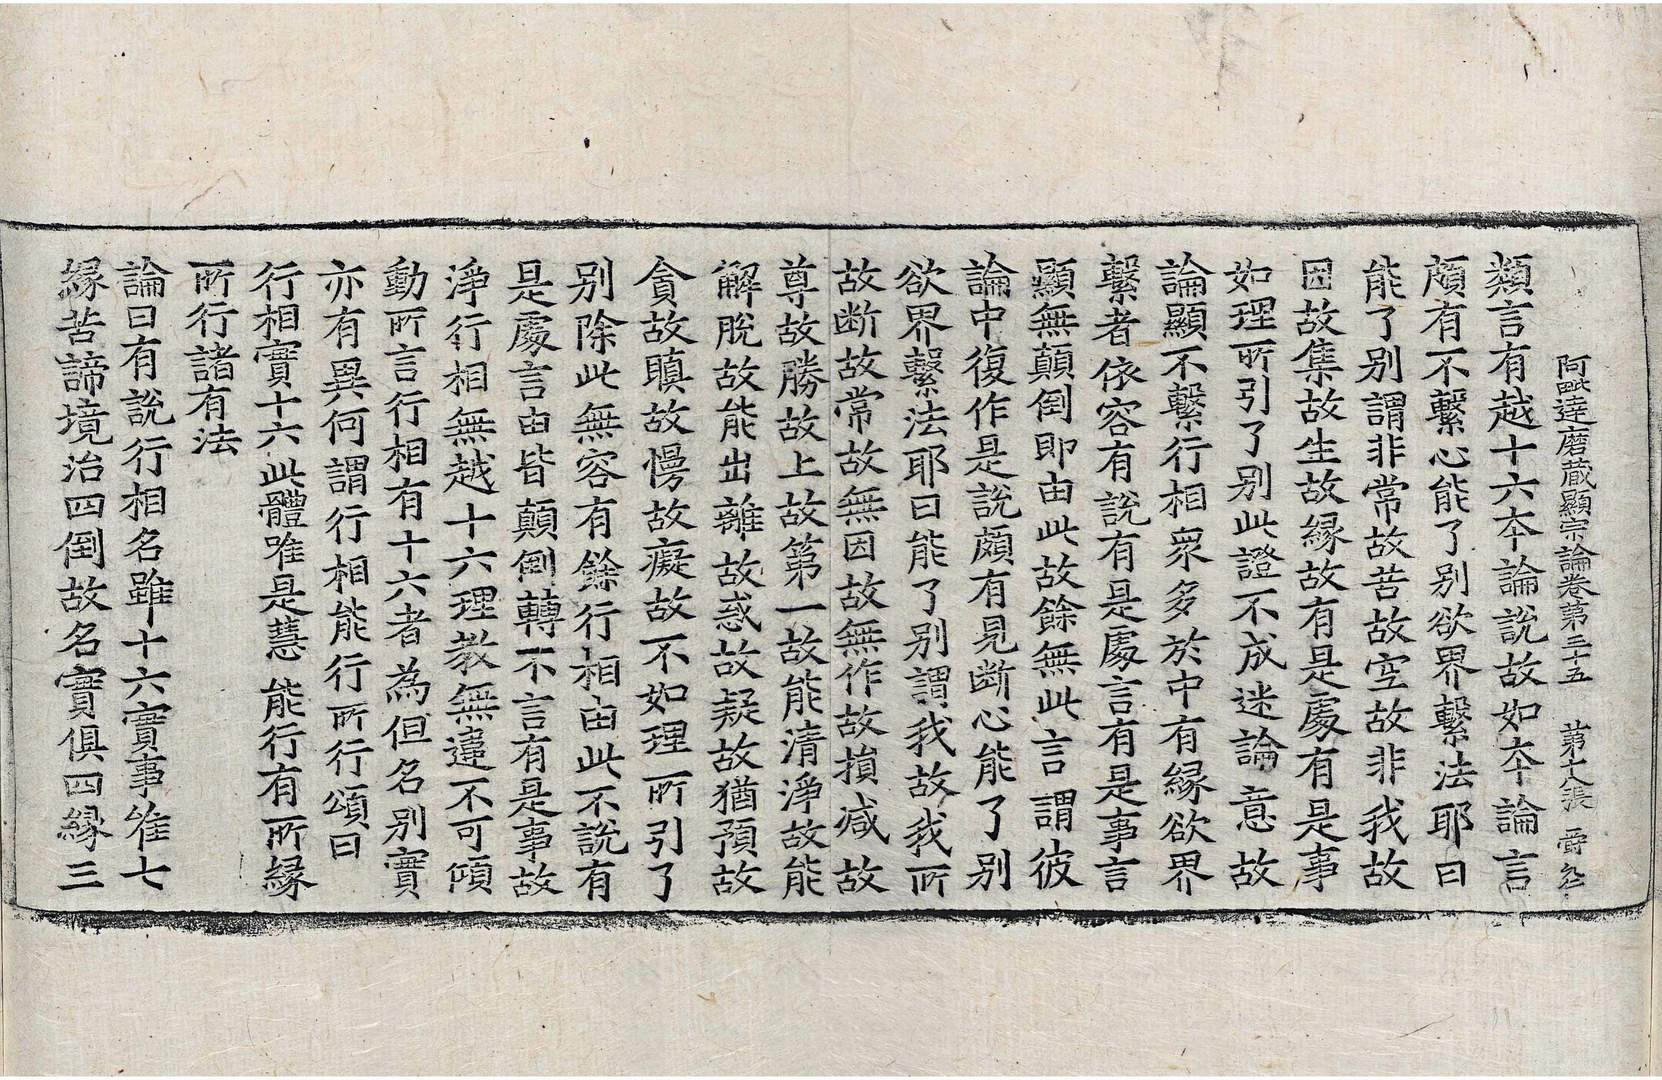 阿毗達磨蔵顯宗論卷第三十五 第十八張
類言有越十六夲論說故如夲論言
頗有不繫心能了別欲界繫法耶曰
能了別謂非常故苦故空故非我故
因故集故生故縁故有是處有是事
如理所引了別此證不成迷論意故
論顯不繫行相衆多於中有縁欲界
繫者依容有說有是處言有是事言
顯無顛倒即由此故餘無此言謂彼
論中復作是說頗有見断心能了別
欲界繫法耶曰能了別謂我故我所
故断故常故無因故無作故損减故
尊故勝故上故第一故能清淨故能
解脫故能出離故惑故疑故猶預故
貪故瞋故慢故癡故不如理所引了
別除此無容有餘行相由此不說有
是處言由皆顛倒轉不言有是事故
淨行相無越十六理教無違不可傾
動所言行相有十六者為但名別實
亦有異何謂行相能行所行頌曰
行相實十六此體唯是慧能行有所縁
所行諸有法
論曰有說行相名雖十六實事唯七
縁苦諦境治四倒故名實俱四縁三